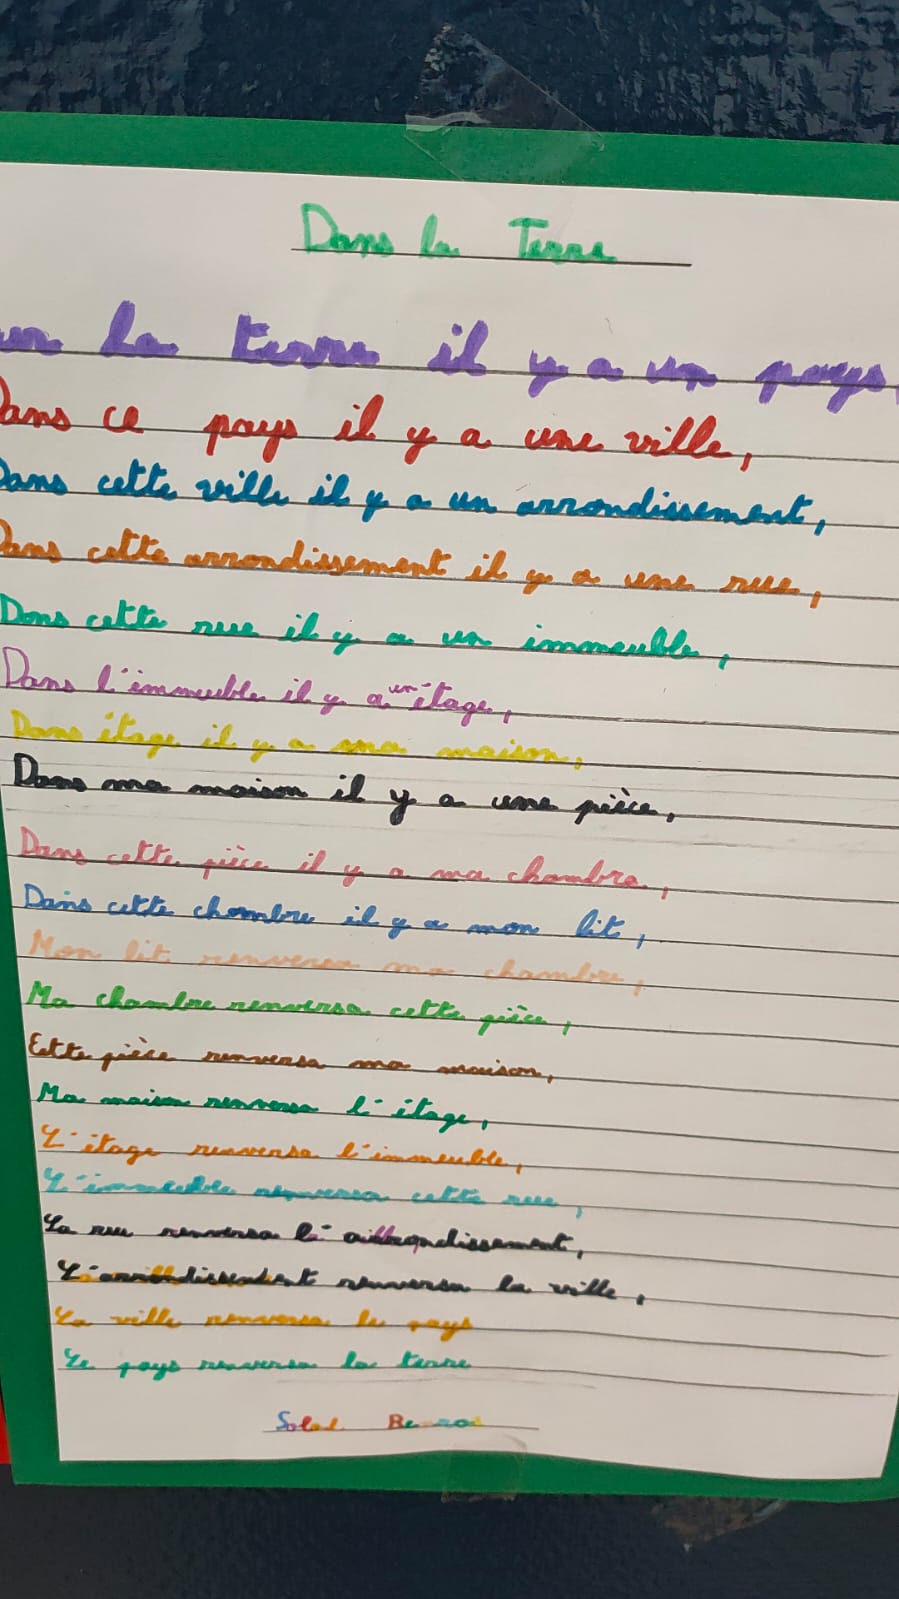 Dans la Terre
ur la terre il y a un pays,
Dans ce pays il y a une ville,
Dans cette ville il y a un arrondissement,
Dans cette arrondissement il y a une rue,
Dans cette rue il y a un immeuble,
Dans l'immeuble il y a un étage,
Dans étage il y a ma maison,
Dans ma maison il y a une pièce,
Dans cette pièce il y a ma chambre,
Dans cette chambre il y a mon lit,
Mon lit renversa ma chambre,
Ma chambre renversa cette pièce,
Cette pièce renversa ma maison,
Ma maison renversa l'étage,
L'étage renversa l'immeuble,
L'immeuble renversa cette rue,
La rue renversa l'arrondissement,
L'arrondissement renversa la ville,
La ville renversa le pays
Le pays renversa la terre